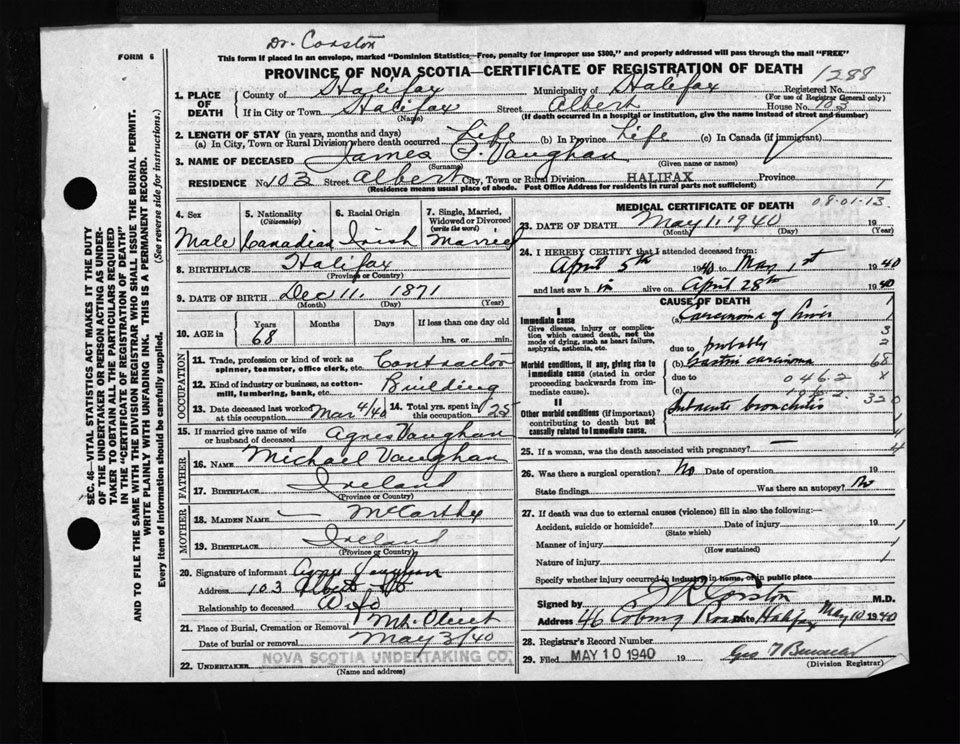 Dr. Corston
FORM 6
This form if placed in an envelope, marked "Dominion Statistics—Free, penalty for improper use $300," and properly addressed will pass through the mail "FREE"
PROVINCE OF NOVA SCOTIA—CERTIFICATE OF REGISTRATION OF DEATH
1288
1. PLACE OF DEATH
County of Halifax Municipality of Halifax Registered No.
(For use of Registrar General only)
If in City or Town Halifax Street Albert House No. 103
(Name) (If death occurred in a hospital or institution, give the name instead of street and number)
2. LENGTH OF STAY (in years, months and days)
(a) In City, Town or Rural Division where death occurred Life (b) In Province Life (c) In Canada (if immigrant)
3. NAME OF DECEASED James J. Vaughan
(Surname) (Given name or names)
RESIDENCE No. 103 Street Albert City, Town or Rural Division HALIFAX Province
(Residence means usual place of abode. Post Office Address for residents in rural parts not sufficient)
4. Sex
Male
5. Nationality
(Citizenship)
Canadian
6. Racial Origin
Irish
7. Single, Married, Widowed or Divorced
(write the word)
Married
8. BIRTHPLACE Halifax
(Province or Country)
9. DATE OF BIRTH Dec 11, 1871
(Month) (Day) (Year)
10. AGE in
Years Months Days If less than one day old
68 hrs. or min.
OCCUPATION
11. Trade, profession or kind of work as spinner, teamster, office clerk, etc. Contractor
12. Kind of industry or business, as cotton-mill, lumbering, bank, etc. Building
13. Date deceased last worked at this occupation Mar 4/40
14. Total yrs. spent in this occupation 25
15. If married give name of wife or husband of deceased Agnes Vaughan
FATHER
16. NAME Michael Vaughan
17. BIRTHPLACE Ireland
(Province or Country)
MOTHER
18. MAIDEN NAME — McCarthy
19. BIRTHPLACE Ireland
(Province or Country)
20. Signature of informant Agnes Vaughan
Address 103 Albert St
Relationship to deceased Wife
21. Place of Burial, Cremation or Removal Mt. Olivet
Date of burial or removal May 3/40
22. UNDERTAKER NOVA SCOTIA UNDERTAKING CO.
(Name and address)
MEDICAL CERTIFICATE OF DEATH
08-01-13.
23. DATE OF DEATH May 1, 1940 19
(Month) (Day) (Year)
24. I HEREBY CERTIFY that I attended deceased from:
April 5th 1940 to May 1st 1940
and last saw h im alive on April 28th 1940
CAUSE OF DEATH
I
Immediate cause
Give disease, injury or complication which caused death, not the mode of dying, such as heart failure, asphyxia, asthenia, etc.
(a) Carcinoma of Liver
due to probably
Morbid conditions, if any, giving rise to immediate cause (stated in order proceeding backwards from immediate cause).
(b) Gastric carcinoma
due to 046.2
(c)
II
Other morbid conditions (if important) contributing to death but not causally related to immediate cause.
Subacute bronchitis
1
1
3
2
68
x
320
25. If a woman, was the death associated with pregnancy? — 4
26. Was there a surgical operation? No Date of operation 19
State findings Was there an autopsy? No
27. If death was due to external causes (violence) fill in also the following:—
Accident, suicide or homicide? Date of injury 19
(State which)
Manner of injury
(How sustained)
Nature of injury
Specify whether injury occurred in industry, in home, or in public place
Signed by J R Corston M.D.
Address 46 Coburg Road Halifax Date May 10 1940
28. Registrar's Record Number
29. Filed MAY 10 1940 19
(Division Registrar)
SEC. 46—VITAL STATISTICS ACT MAKES IT THE DUTY
OF THE UNDERTAKER OR PERSON ACTING AS UNDER-
TAKER TO OBTAIN ALL THE PARTICULARS REQUIRED
IN THE "CERTIFICATE OF REGISTRATION OF DEATH"
AND TO FILE THE SAME WITH THE DIVISION REGISTRAR WHO SHALL ISSUE THE BURIAL PERMIT.
WRITE PLAINLY WITH UNFADING INK. THIS IS A PERMANENT RECORD.
Every item of information should be carefully supplied. (See reverse side for instructions.)